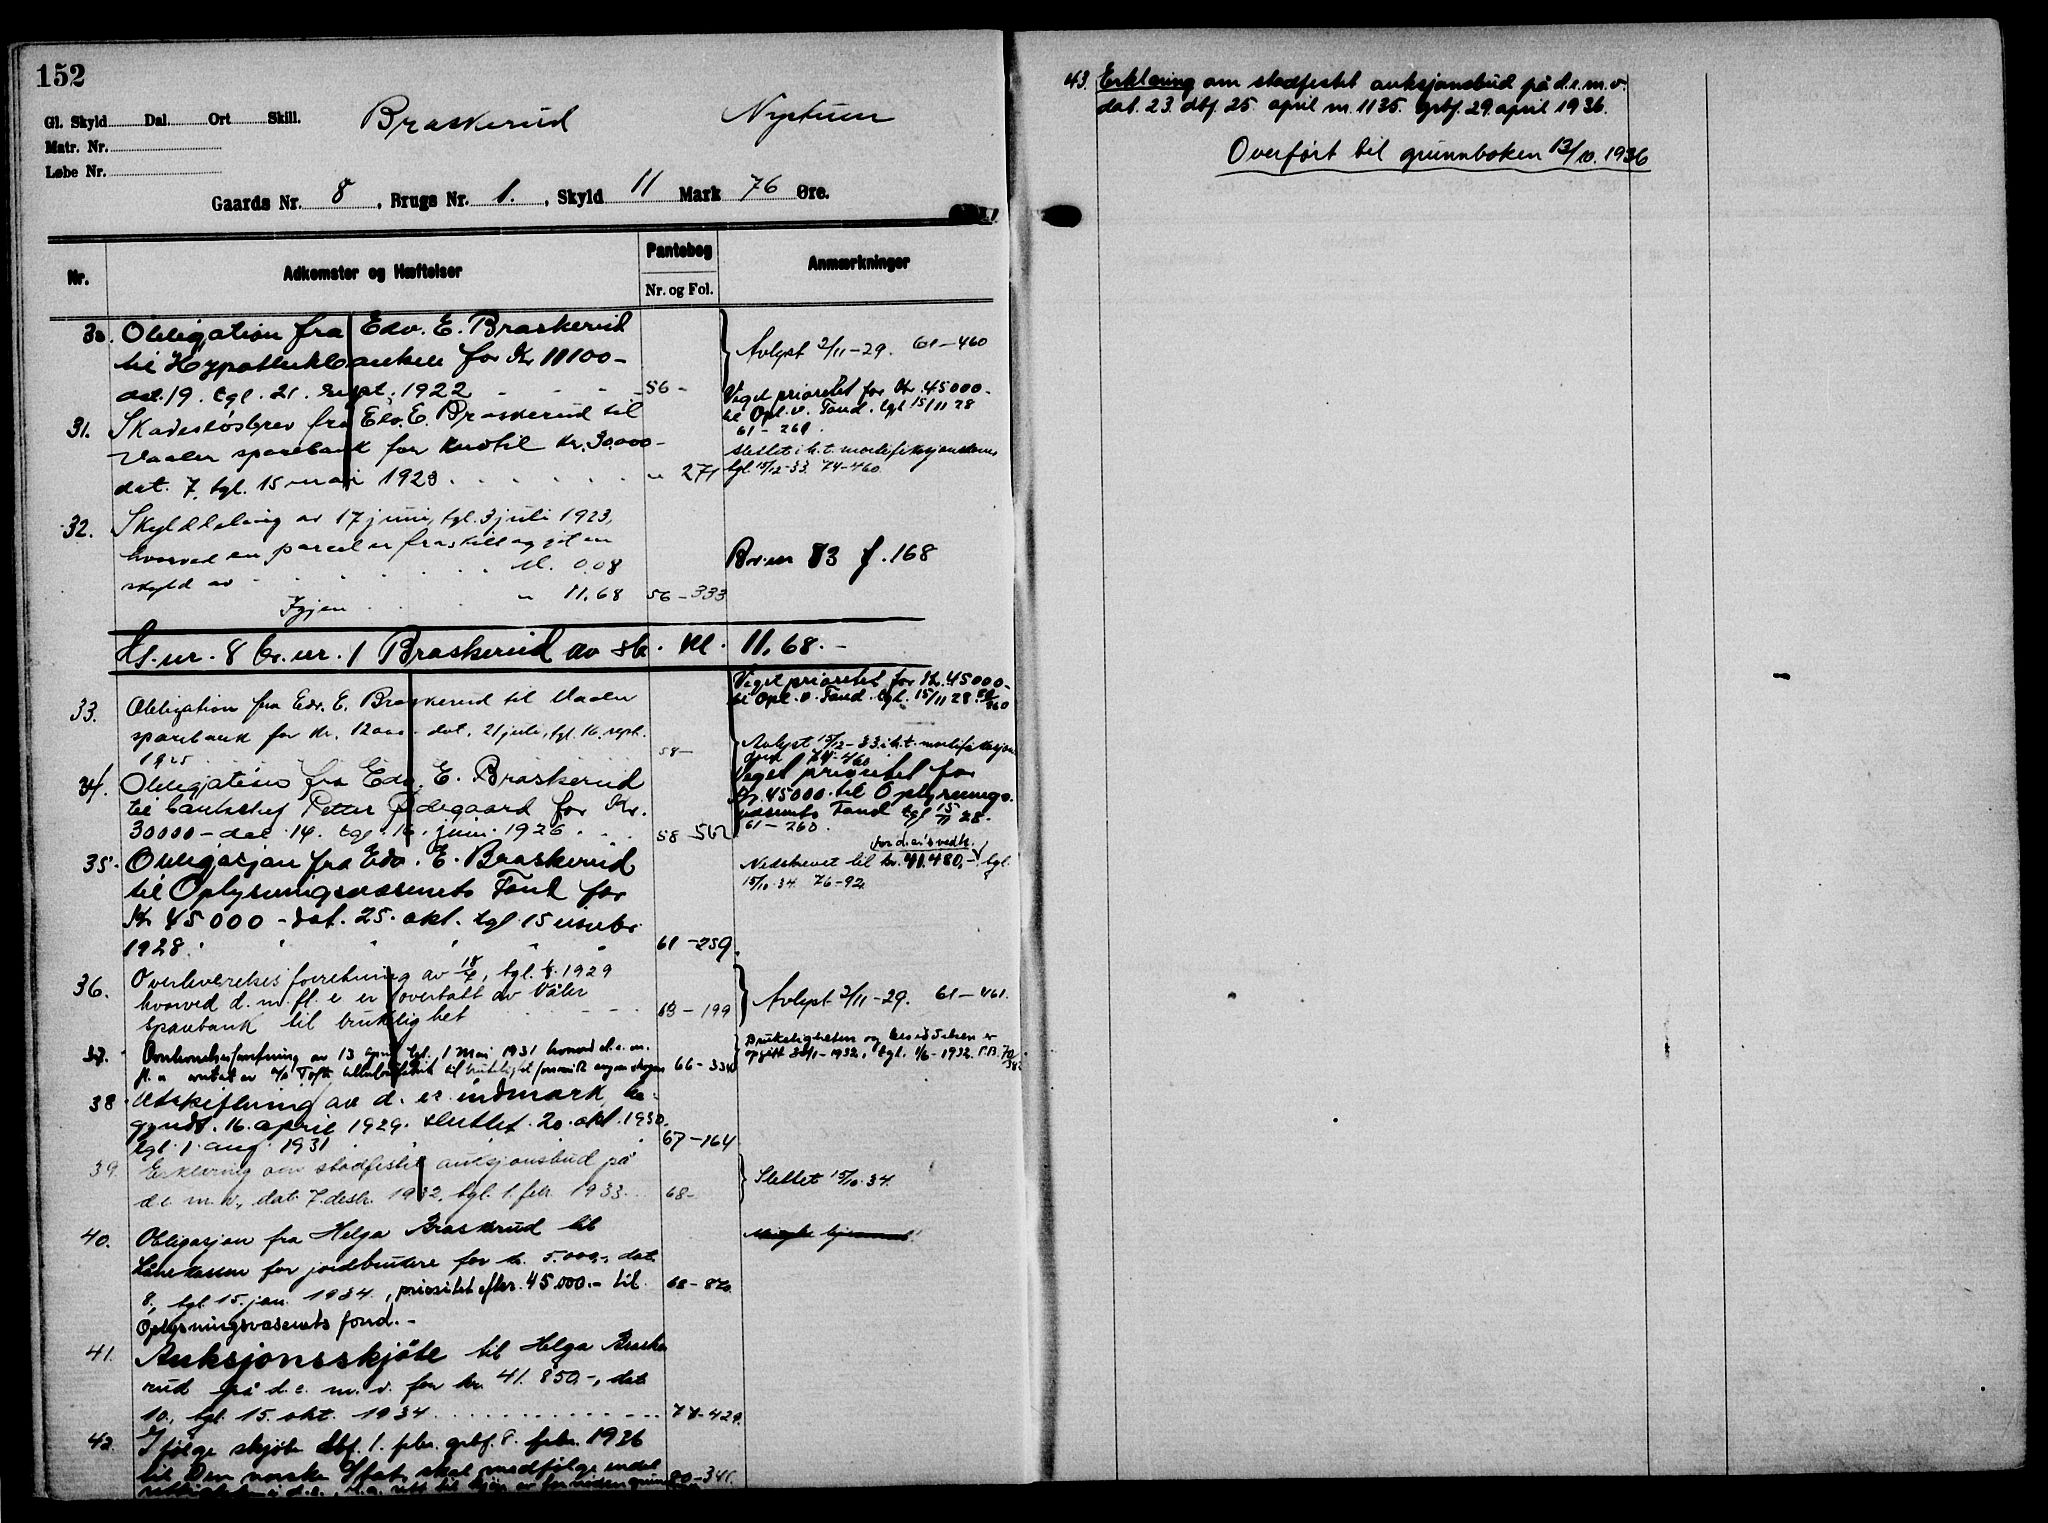 152
Gl. Skyld Dal. Ort Skill.
Braskerud Nystuen
Matr. Nr.
Løbe Nr.
Gaards Nr. 8, Brugs Nr. 1., Skyld 11 Mark 76 Øre.
Nr. Adkomster og Hæftelser Pantebog Anmærkninger
Nr. og Fol.
30. Obligation fra Edv. E. Braskerud
til Hypothekbanken for Kr 11100-
dat. 19. tgl. 21. sept. 1922 56-
Avlyst 2/11-29. 61-460
31. Skadesløsbrev fra Edv. E. Braskerud til
Vaaler sparebank for indtil Kr. 30.000-
dat. 7. tgl. 15 mai 1923 " 271
Veget prioritet for Kr. 45000-
til Opl. v. Fond. tgl 15/11 28
61-260.
Slettet i h.t. mortifikasjonsdom
tgl. 15/12-33. 74-460.
32. Skylddeling av 17 juni, tgl. 3 juli 1923,
hvorved en parcel er fraskilt og git en
skyld av M. 0.08
Igjen " 11.68 56-333
Br. nr 83 f. 168
Gs. nr. 8 br. nr. 1 Braskerud av sk. M. 11,68.-
33. Obligation fra Edv. E. Braskerud til Vaaler
sparebank for kr. 12000- dat. 21 juli, tgl. 16. sept.
1925 58-
Veget prioritet for Kr. 45000-
til Opl. v. Fond. tgl. 15/11 28 61/260
Avlyst 15/12-33 i h.t. mortifikasjons
dom 74-460
34. Obligation fra Edv. E. Braskerud
til banksjef Petter Ødegaard for Kr.
30000- dat. 14. tgl. 16. juni 1926. 58-562
Veget prioritet for
Kr. 45000. til Oplysnings-
væsenets Fond tgl 15/11 28.
61-260.
35. Obligasjon fra Edv. E. Braskerud
til Oplysningsvæsenets Fond for
Kr 45000- dat. 25. okt. tgl 15 novbr.
1928. 61-259.
for d. e's vedk.
Nedskrevet til kr. 41.480,- tgl.
15/10.34. 76-92.
36. Overleverelsesforretning av 18/4, tgl. 1929
hvorved d. m. fl. e. er overtatt av Våler
Sparebank til brukelighet 63-199
Avlyst 2/11-29. 61-461.
37. Overleverelsesforretning av 13 april tgl. 1 Mai 1931 hvorved d. e. m.
fl. e. overtat av A/S Tofte cellulosefabrik til brukelighet 66-334
Brukeligheten og besiddelsen er
opgitt 1932, tgl. 1/6-1932. P.B. 70/382
38 Utskiftning av d. es. indmark, be-
gyndt. 16. april 1929. sluttet. 20. okt. 1930.
tgl. 1. aug. 1931 67-164
39. Erklæring om stadfestet auksjonsbud på
d. e. m. v., dat. 7. desbr. 1932, tgl. 1. febr. 1933. 68-
Slettet 15/10.34.
40. Obligasjon fra Helga Braskerud til
Lånekassen for jordbrukere for kr. 5.000,-, dat.
8., tgl. 15. jan. 1934., prioritet efter. 45.000.- til 68-870.
Oplysningsvæsenets fond.-
41. Auksjonsskjøte til Helga Braske
rud på d. e. m. v. for kr. 41.850.-, dat.
10., tgl. 15. okt. 1934 77-429.
42. Ifølge skjøte dbf. 1. febr. grbf. 8. febr. 1936
til Den norske stat, skal medfølge endel 80-341.
43. Erklæring om stadfestet auksjonsbud på d. e. m. v.
dat. 23. dbf. 25 april nr. 1135. grbf. 29. april 1936.
Overført til grunnboken 13/10. 1936